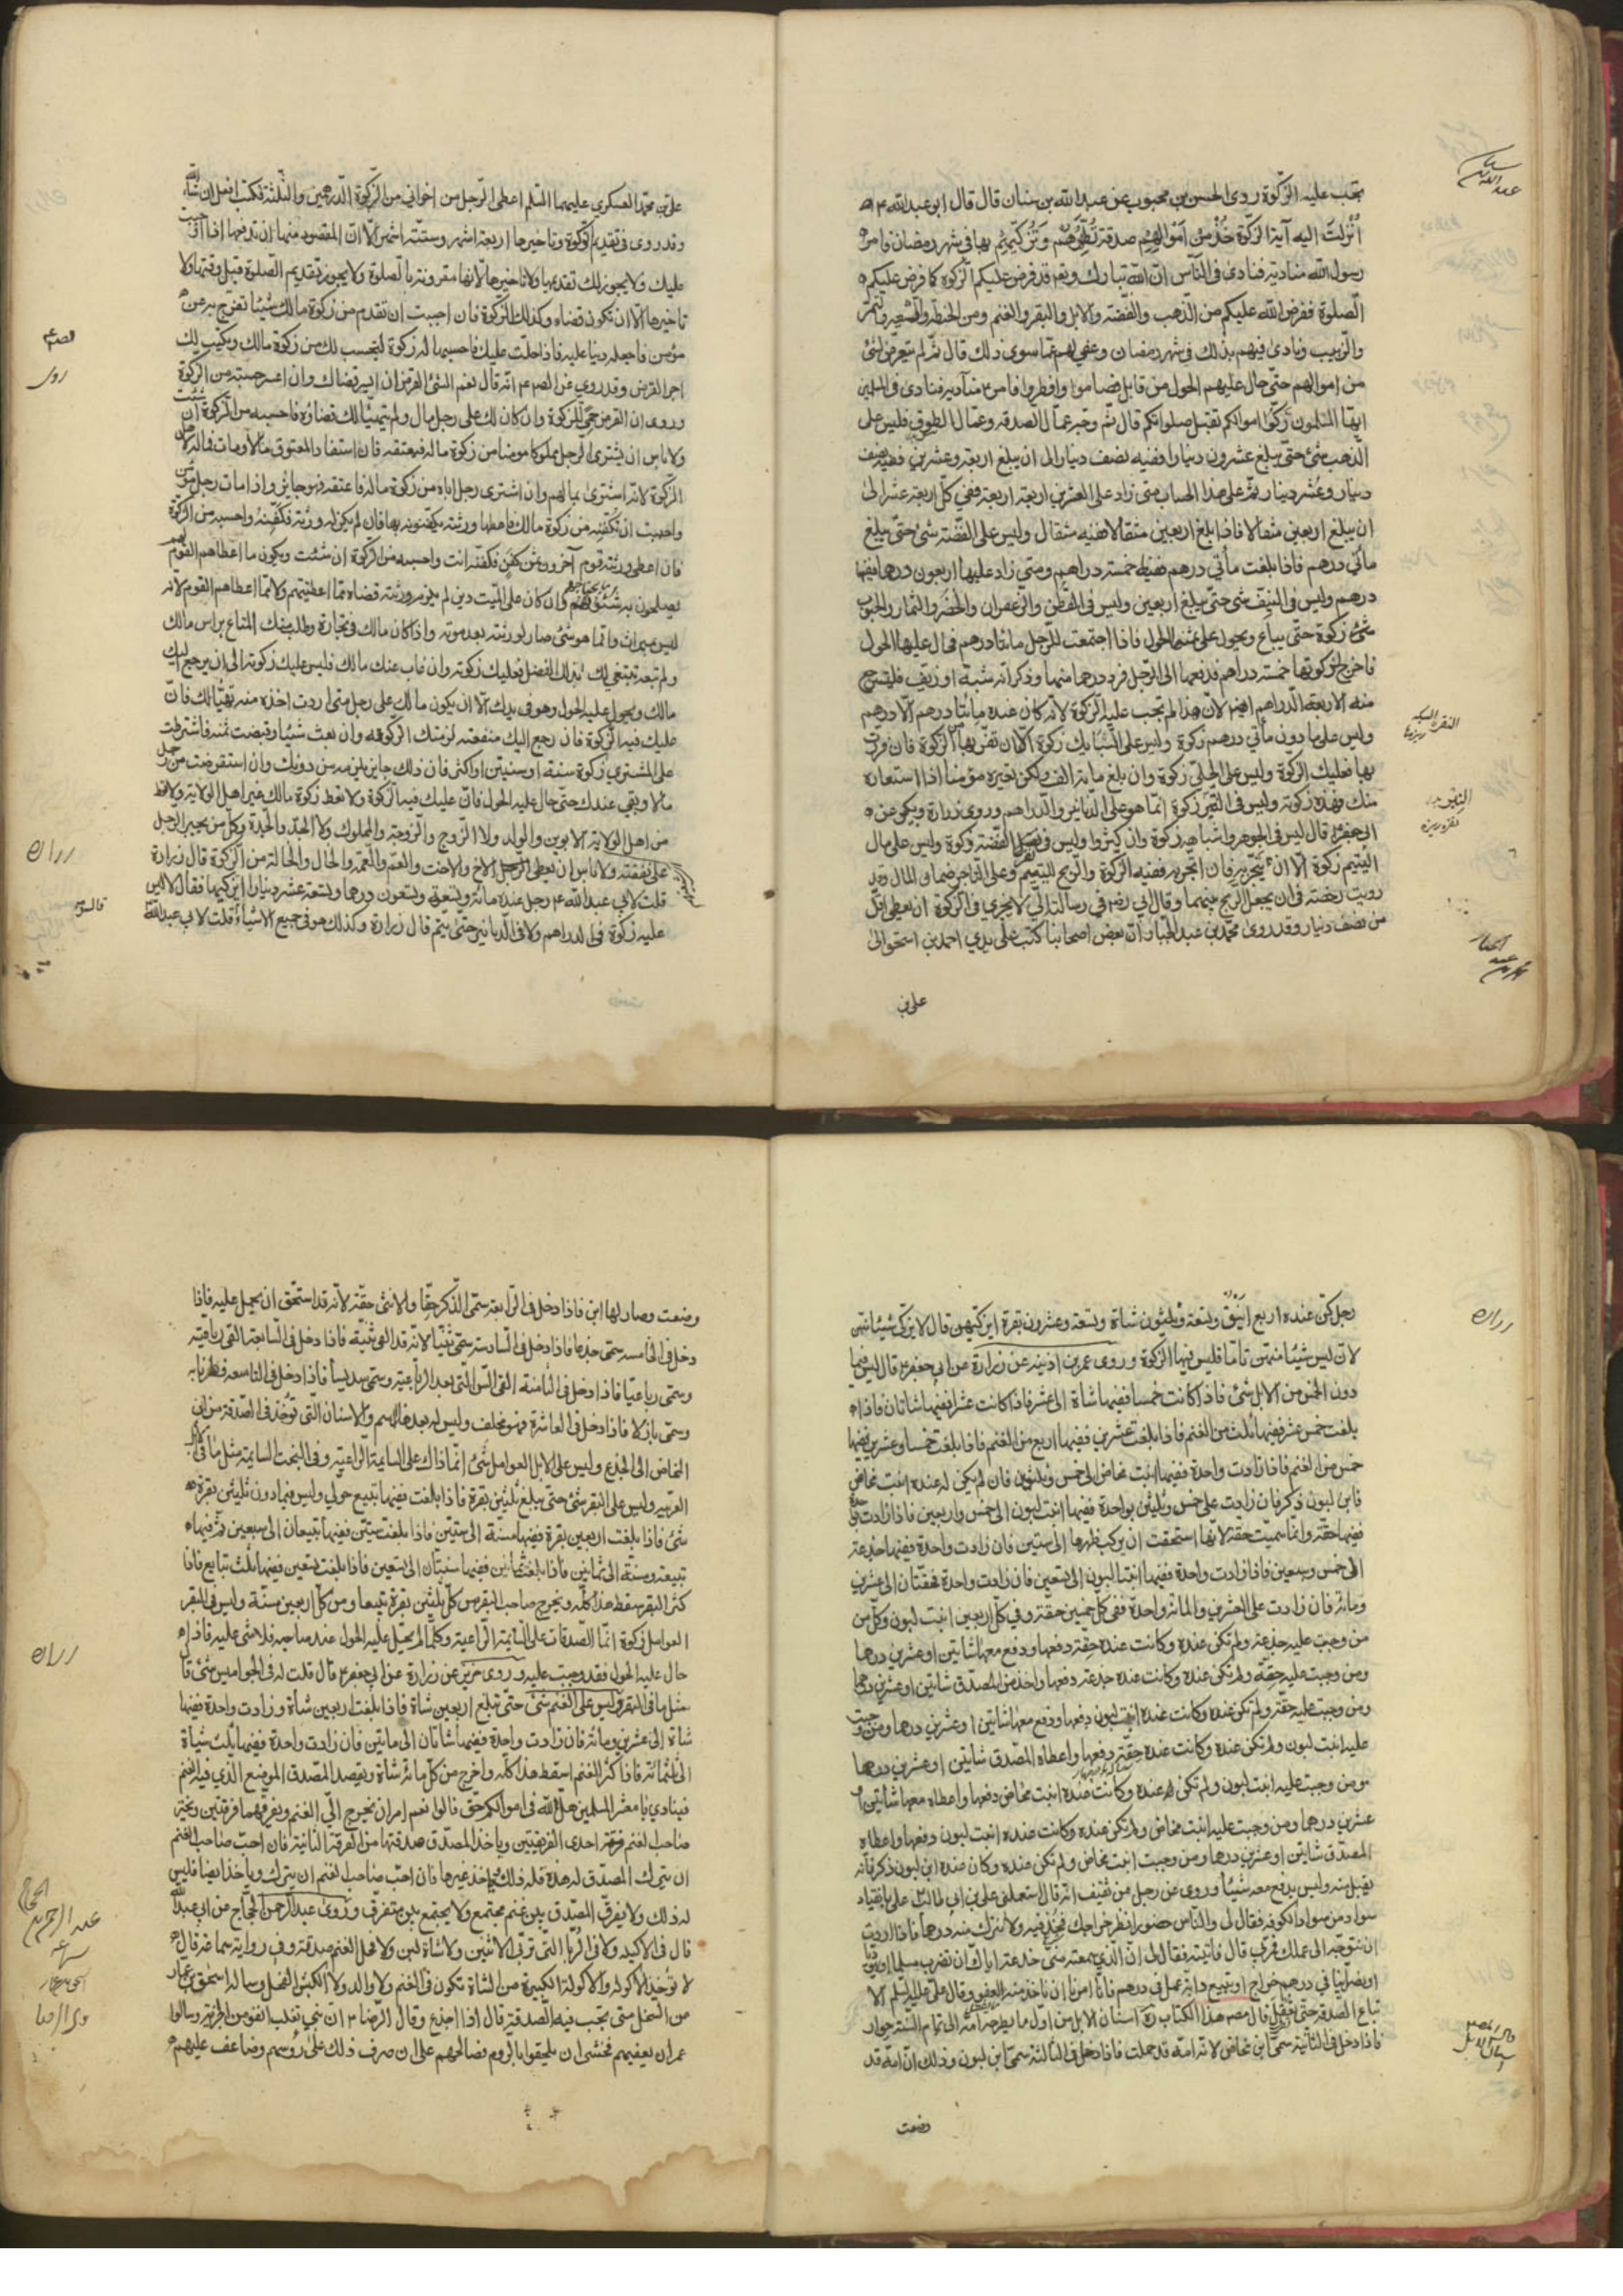 تجب عليه الزكوة روى الحسن بن محبوب عن عبد الله بن سنان قال قال ابو عبد الله ع
انزلت اليه آية الزكوة خذ من اموالهم صدقة تطهرهم وتزكيهم بها في شهر رمضان فامر
رسول الله مناديه فنادى في الناس ان الله تبارك وتعالى قد فرض عليكم الزكوة كما فرض عليكم
الصلوة ففرض الله عليكم من الذهب والفضة والابل والبقر والغنم ومن الحنطة والشعير والتمر
والزبيب ونادى فيهم بذلك في شهر رمضان وعفى لهم عما سوى ذلك قال ثم لم يتعرض لشئ
من اموالهم حتى حال عليهم الحول من قابل فصاموا وافطروا فامر ص مناديه فنادى في المسلمين
ايها المسلمون زكوا اموالكم تقبل صلواتكم قال ثم وجه عمال الصدقه وعمال الطسوق فليس على
الذهب شئ حتى يبلغ عشرون دينارا ففيه نصف دينار الى ان يبلغ اربعة وعشرين ففيه نصف
دينار وعشر دينار ثم على هذا الحساب متى زاد على العشرين اربعة اربعة ففي كل اربعة عشر الى
ان يبلغ اربعين مثقالا فاذا بلغ اربعين مثقالا ففيه مثقال وليس على الفضة شئ حتى يبلغ
مأتي درهم فاذا بلغت مأتي درهم ففيه خمسة دراهم ومتى زاد عليها اربعون درهما ففيها
درهم وليس في النيف شئ حتى يبلغ اربعين وليس في القطن والزعفران والخضر والثمار والحبوب
شئ زكوة حتى يباع ويحول على ثمنه الحول فاذا اجتمعت للرجل مائتا درهم فحال عليها الحول
فاخرج لزكوتها خمسة دراهم فدفعها الى الرجل فرد درهما منها وذكر انه شبه او زيف فليسترجع
منه الاربعة الدراهم ايضا لان هذا لم تجب عليه الزكوة لانه كان عنده مائتا درهم الا درهم
وليس على ما دون مأتي درهم زكوة وليس على السبائك زكوة الا ان تفر بها من الزكوة فان فررت
بها فعليك الزكوة وليس على الحلي زكوة وان بلغ مائة الف ولكن تعيره مؤمنا اذا استعاره
منك فهذه زكوته وليس في النقير زكوة انما هو على الدنانير والدراهم وروى زرارة وبكير عن
ابي جعفر ع قال ليس في الجوهر واشباهه زكوة وان كثر وليس في نقر الفضة زكوة وليس على مال
اليتيم زكوة الا ان يتجر به فان اتجر به ففيه الزكوة والربح لليتيم وعلى التاجر ضمان المال وقد
رويت رخصة في ان يجعل الربح بينهما وقال ابي رض في رسالته الي لا يجزي في الزكوة ان يعطى اقل
من نصف دينار وقد روى محمد بن عبد الجبار ان بعض اصحابنا كتب على يدي احمد بن اسحق الى
علي بن
عبد الله بن سنان
محمد بن عبد الجبار
علي بن محمد العسكري عليهما السلم اعطي الرجل من اخواني من الزكوة الدرهمين والثلثة فكتب افعل ان شاء الله
وقد روى في تقديم الزكوة وتأخيرها اربعة اشهر وستة اشهر الا ان المقصود منها ان تدفعها اذا وجبت
عليك ولا يجوز لك تقديمها ولا تاخيرها لانها مقرونة بالصلوة ولا يجوز تقديم الصلوة قبل وقتها ولا
تاخيرها الا ان تكون قضاء وكذلك الزكوة فان احببت ان تقدم من زكوة مالك شيئا تفرج به عن
مؤمن فاجعله دينا عليه فاذا حلت عليك فاحسبها له زكوة ليحسب لك من زكوة مالك ويكتب لك
اجر القرض وقد روي عن الصم ع انه قال نعم الشئ القرض ان ايسر قضاك وان اعسر حسبته من الزكوة
وروى ان القرض حمى للزكوة وان كان لك على رجل مال ولم يتهيأ لك قضاؤه فاحسبه من الزكوة ان شئت
ولا باس ان يشتري الرجل مملوكا مؤمنا من زكوة ماله فيعتقه فان استفاد المعتوق مالا ومات فماله لاهل
الزكوة لانه اشترى بمالهم وان اشترى رجل اباه من زكوة ماله فاعتقه فهو جايز واذا مات رجل مؤمن
واحببت ان تكفنه من زكوة مالك فاعطها ورثته يكفنونه بها فان لم يكن له ورثة فكفنه واحسبه من الزكوة
فان اعطى ورثته قوم آخرون ثمن كفن فكفنه انت واحسبه من الزكوة ان شئت ويكون ما اعطاهم القوم لهم
يصلحون به شئونهم وان كان على الميت دين لم يلزم ورثته قضاه مما اعطيتهم ولا مما اعطاهم القوم لانه
ليس بميراث وانما هو شئ صار لورثته بعد موته واذا كان مالك في تجارة وطلب منك المتاع براس مالك
ولم تبعه تبتغي لك بذلك الفضل فعليك زكوته وان غاب عنك مالك فليس عليك زكوته الى ان يرجع اليك
مالك ويحول عليه الحول وهو في يدك الا ان يكون مالك على رجل متى اردت اخذه منه تهيأ لك فان
عليك فيه الزكوة فان رجع اليك منفعته لزمتك الزكوة وان بعت شيئا وقبضت ثمنه فاشترطت
على المشتري زكوة سنة او سنتين او اكثر فان ذلك جايز يلزمه من دونك وان استقرضت من رجل
مالا وبقي عندك حتى حال عليه الحول فان عليك فيه الزكوة ولا تعط زكوة مالك غير اهل الولاية ولا تعط
من اهل الولاية الابوين والولد ولا الزوج والزوجة والمملوك ولا الجد والجدة وكل من يجبر الرجل
على نفقته ولا باس ان يعطى الاخ والاخت والعم والعمة والخال والخالة من الزكوة قال زرارة
قلت لابي عبد الله ع رجل عنده مائة وتسعة وتسعون درهما وتسعة عشر دينارا ايزكيها فقال لا ليس
عليه زكوة في الدراهم ولا في الدنانير حتى يتم قال زرارة وكذلك هو في جميع الاشياء قلت لابي عبد الله
روى
زراره
رجل كن عنده اربع اينق وتسعة وثلثون شاة وتسعة وعشرون بقرة ايزكيهن قال لا يزكي شيئا منهن
لان ليس شيئا منهن تاما فليس فيها الزكوة وروى عمر بن اذينه عن زرارة عن ابي جعفر ع قال ليس فيما
دون الخمس من الابل شئ فاذا كانت خمسا ففيها شاة الى عشر فاذا كانت عشرا ففيها شاتان فاذا
بلغت خمس عشر ففيها ثلث من الغنم فاذا بلغت عشرين ففيها اربع من الغنم فاذا بلغت خمسا وعشرين ففيها
خمس من الغنم فاذا زادت واحدة ففيها ابنت مخاض الى خمس وثلثين فان لم يكن له عنده ابنت مخاض
فابن لبون ذكر فان زادت على خمس وثلثين بواحدة ففيها ابنت لبون الى خمس واربعين فاذا زادت واحدة
ففيها حقة وانما سميت حقة لانها استحقت ان يركب ظهرها الى ستين فان زادت واحدة ففيها جذعة
الى خمس وسبعين فاذا زادت واحدة ففيها ابنتا لبون الى تسعين فان زادت واحدة فحقتان الى عشرين
ومائة فان زادت على العشرين والمائة واحدة ففي كل خمسين حقة وفي كل اربعين ابنت لبون وكل من
من وجبت عليه جذعة ولم تكن عنده وكانت عنده حقة دفعها ودفع معها شاتين او عشرين درهما
ومن وجبت عليه حقة ولم تكن عنده وكانت عنده جذعة دفعها واخذ من المصدق شاتين او عشرين درهما
ومن وجبت عليه حقة ولم تكن عنده وكانت عنده ابنت لبون دفعها ودفع معها شاتين او عشرين درهما ومن وجبت
عليه ابنت لبون ولم تكن عنده وكانت عنده حقة دفعها واعطاه المصدق شاتين او عشرين درهما
ومن وجبت عليه ابنت لبون ولم تكن عنده وكانت عنده ابنت مخاض دفعها واعطاه معها شاتين او
عشرين درهما ومن وجبت عليه ابنت مخاض ولم تكن عنده وكانت عنده ابنت لبون دفعها واعطاه
المصدق شاتين او عشرين درهما ومن وجبت ابنت مخاض ولم تكن عنده وكان عنده ابن لبون ذكر فانه
تقبل منه وليس يدفع معه شيئا وروى عن رجل من ثقيف انه قال استعملني علي بن ابي طالب ع على بانقياد
سواد من سواد الكوفه فقال لي والناس حضور انظر خراجك فجد فيه ولا تترك منه درهما فاذا اردت
ان تتوجه الى عملك فمر بي قال فاتيته فقال لي ان الذي سمعته مني خدعة اياك ان تضرب مسلما او يهوديا
او نصرانيا في درهم خراج او تبيع دابة عمل في درهم فانا امرنا ان ناخذ منه العفو وقال علي عليه السلم لا
تباع الصدقة حتى تعقل قال مصنف هذا الكتاب ره اسنان الابل من اول ما يطرحه امه الى تمام السنة حوار
فاذا دخل في الثانية سمي ابن مخاض لانه امه قد حملت فاذا دخل في الثالثة سمي ابن لبون وذلك ان امه قد
وضعت
زراره
وضعت وصار لها ابن فاذا دخل في الرابعة سمى الذكر حقا والانثى حقة لانه قد استحق ان يحمل عليه فاذا
دخل في الخامسه سمى جذعا فاذا دخل في السادسة سمى ثنيا لانه قد القى ثنيه فاذا دخل في السابعة القى رباعيته
وسمى رباعيا فاذا دخل في الثامنة القى السن التي بعد الرباعية وسمى سديسا فاذا دخل في التاسعة فطر نابه
وسمى بازلا فاذا دخل في العاشرة فهو مخلف وليس له بعد هذا اسم والاسنان التي تؤخذ في الصدقة من ابن
المخاض الى الجذع وليس على الابل العوامل شئ انما ذاك على السايمة الراعية وفي البخت السايمة مثل ما في الابل
العربيه وليس على البقر شئ حتى يبلغ ثلثين بقرة فاذا بلغت ففيها تبيع حولي وليس فيما دون ثلثين بقرة
شئ فاذا بلغت اربعين بقرة ففيها مسنة الى ستين فاذا بلغت ستين ففيها تبيعان الى سبعين ثم فيها
تبيعة ومسنة الى ثمانين فاذا بلغت ثمانين ففيها مسنتان الى تسعين فاذا بلغت تسعين ففيها ثلث تبايع فاذا
كثر البقر سقط هذا كله ويخرج صاحب البقر من كل ثلثين بقرة تبيعا ومن كل اربعين مسنة وليس في البقر
العوامل زكوة انما الصدقات على السايمة الراعية وكلما لم يحل عليه الحول عند صاحبه فلا شئ عليه فاذا
حال عليه الحول فقد وجبت عليه وروى حريز عن زرارة عن ابي جعفر ع قال قلت له في الجواميس شئ قال
مثل ما في البقر وليس على الغنم شئ حتى تبلغ اربعين شاة فاذا بلغت اربعين شاة وزادت واحدة ففيها
شاة الى عشرين ومائة فان زادت واحدة ففيها شاتان الى مأتين فان زادت واحدة ففيها ثلث شياة
الى ثلثمائة فاذا كثر الغنم اسقط هذا كله واخرج من كل مائة شاة ويقصد المصدق الموضع الذي فيه الغنم
فينادي يا معشر المسلمين هل لله في اموالكم حق فان قالوا نعم امر ان يخرج الي الغنم ويفرقهما فرقتين ويخير
صاحب الغنم فرقة احدى الفرقتين وياخذ المصدق صدقتها من الفرقة الثانية فان احب صاحب الغنم
ان يترك المصدق له هذه فله ذلك وياخذ غيرها فان احب صاحب الغنم ان يترك وياخذ ايضا فليس
له ذلك ولا يفرق المصدق بين غنم مجتمع ولا يجتمع بين متفرق وروى عبد الرحمن الحجاج عن ابي عبد الله
قال في الاكيله ولا في الربا التي تربى الاثنين ولا شاة لبن ولا فحل الغنم صدقة وفي رواية سماعة قال
لا تؤخذ الاكوله والاكولة الكبيرة من الشاة تكون في الغنم ولا والد ولا الكبش الفحل وساله اسحق بن عمار
من السخل متى تجب فيه الصدقة قال اذا اجذع وقال الرضا ع ان بني تغلب انفوا من الجزية وسالوا
عمران يعفيهم فخشى ان يلحقوا بالروم فصالحهم على ان صرف ذلك على رؤسهم وضاعف عليهم
زراره
عبد الرحمن بن الحجاج
سماعه
اسحق بن عمار